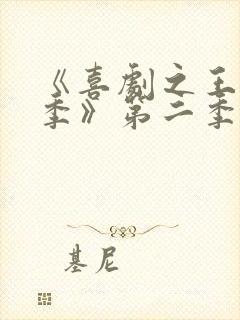 《喜劇之王
季》第二季
基尼